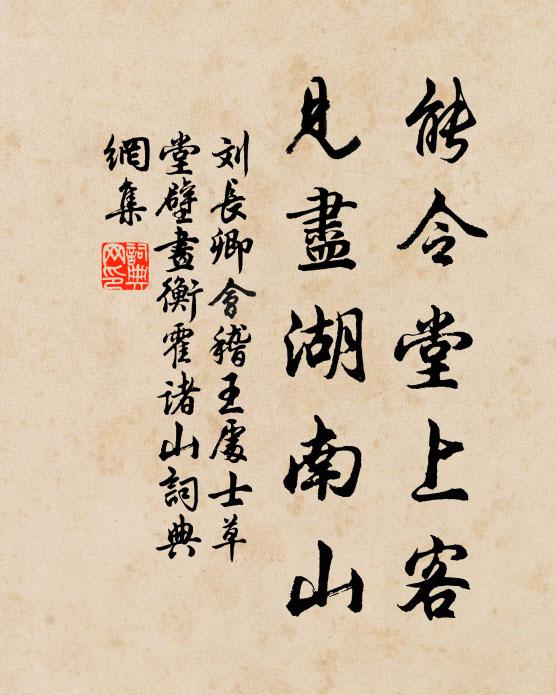 能令堂上客
見盡湖南山
刘長卿會稽王處士草
堂壁畫衡霍诸山詞典
網集
詞典
网印